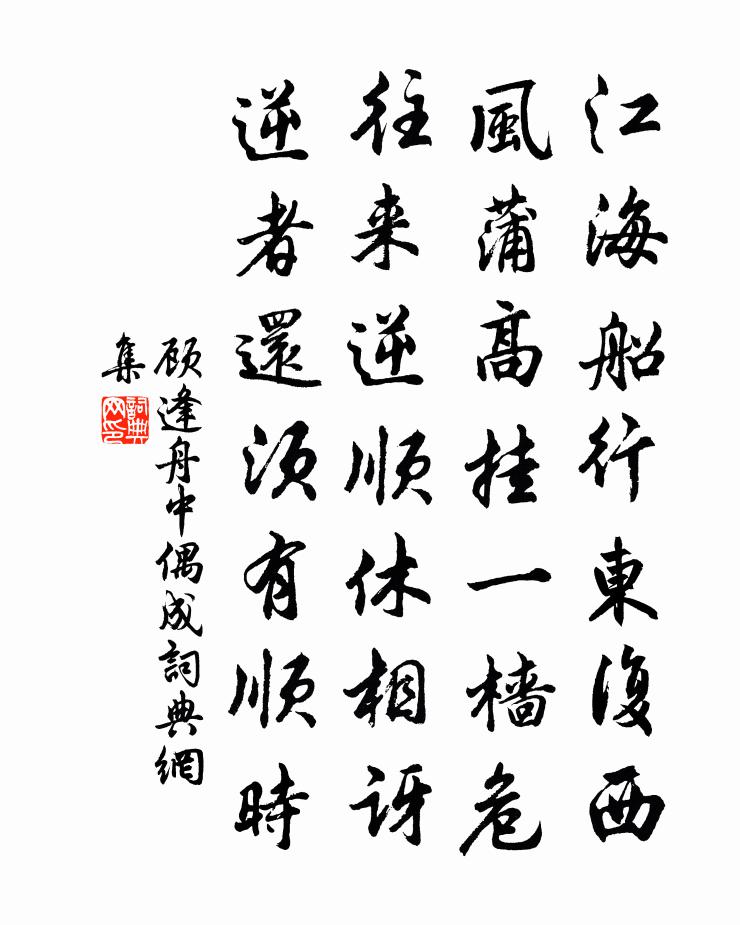 江海船行東復西
風蒲高挂一檣危
往来逆順休相訝
逆者還須有順時
顾逢舟中偶成詞典網
集
詞典
网印